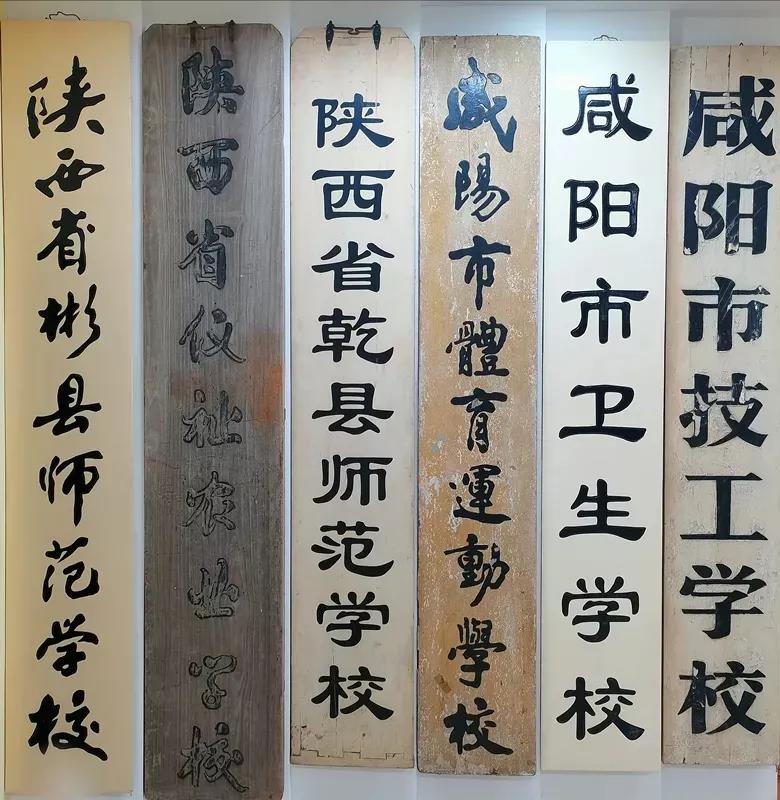 陕西省彬县师范学校
陕西省仪祉农业学校
陕西省乾县师范学校
咸陽市體育運動學校
咸阳市卫生学校
咸阳市技工学校